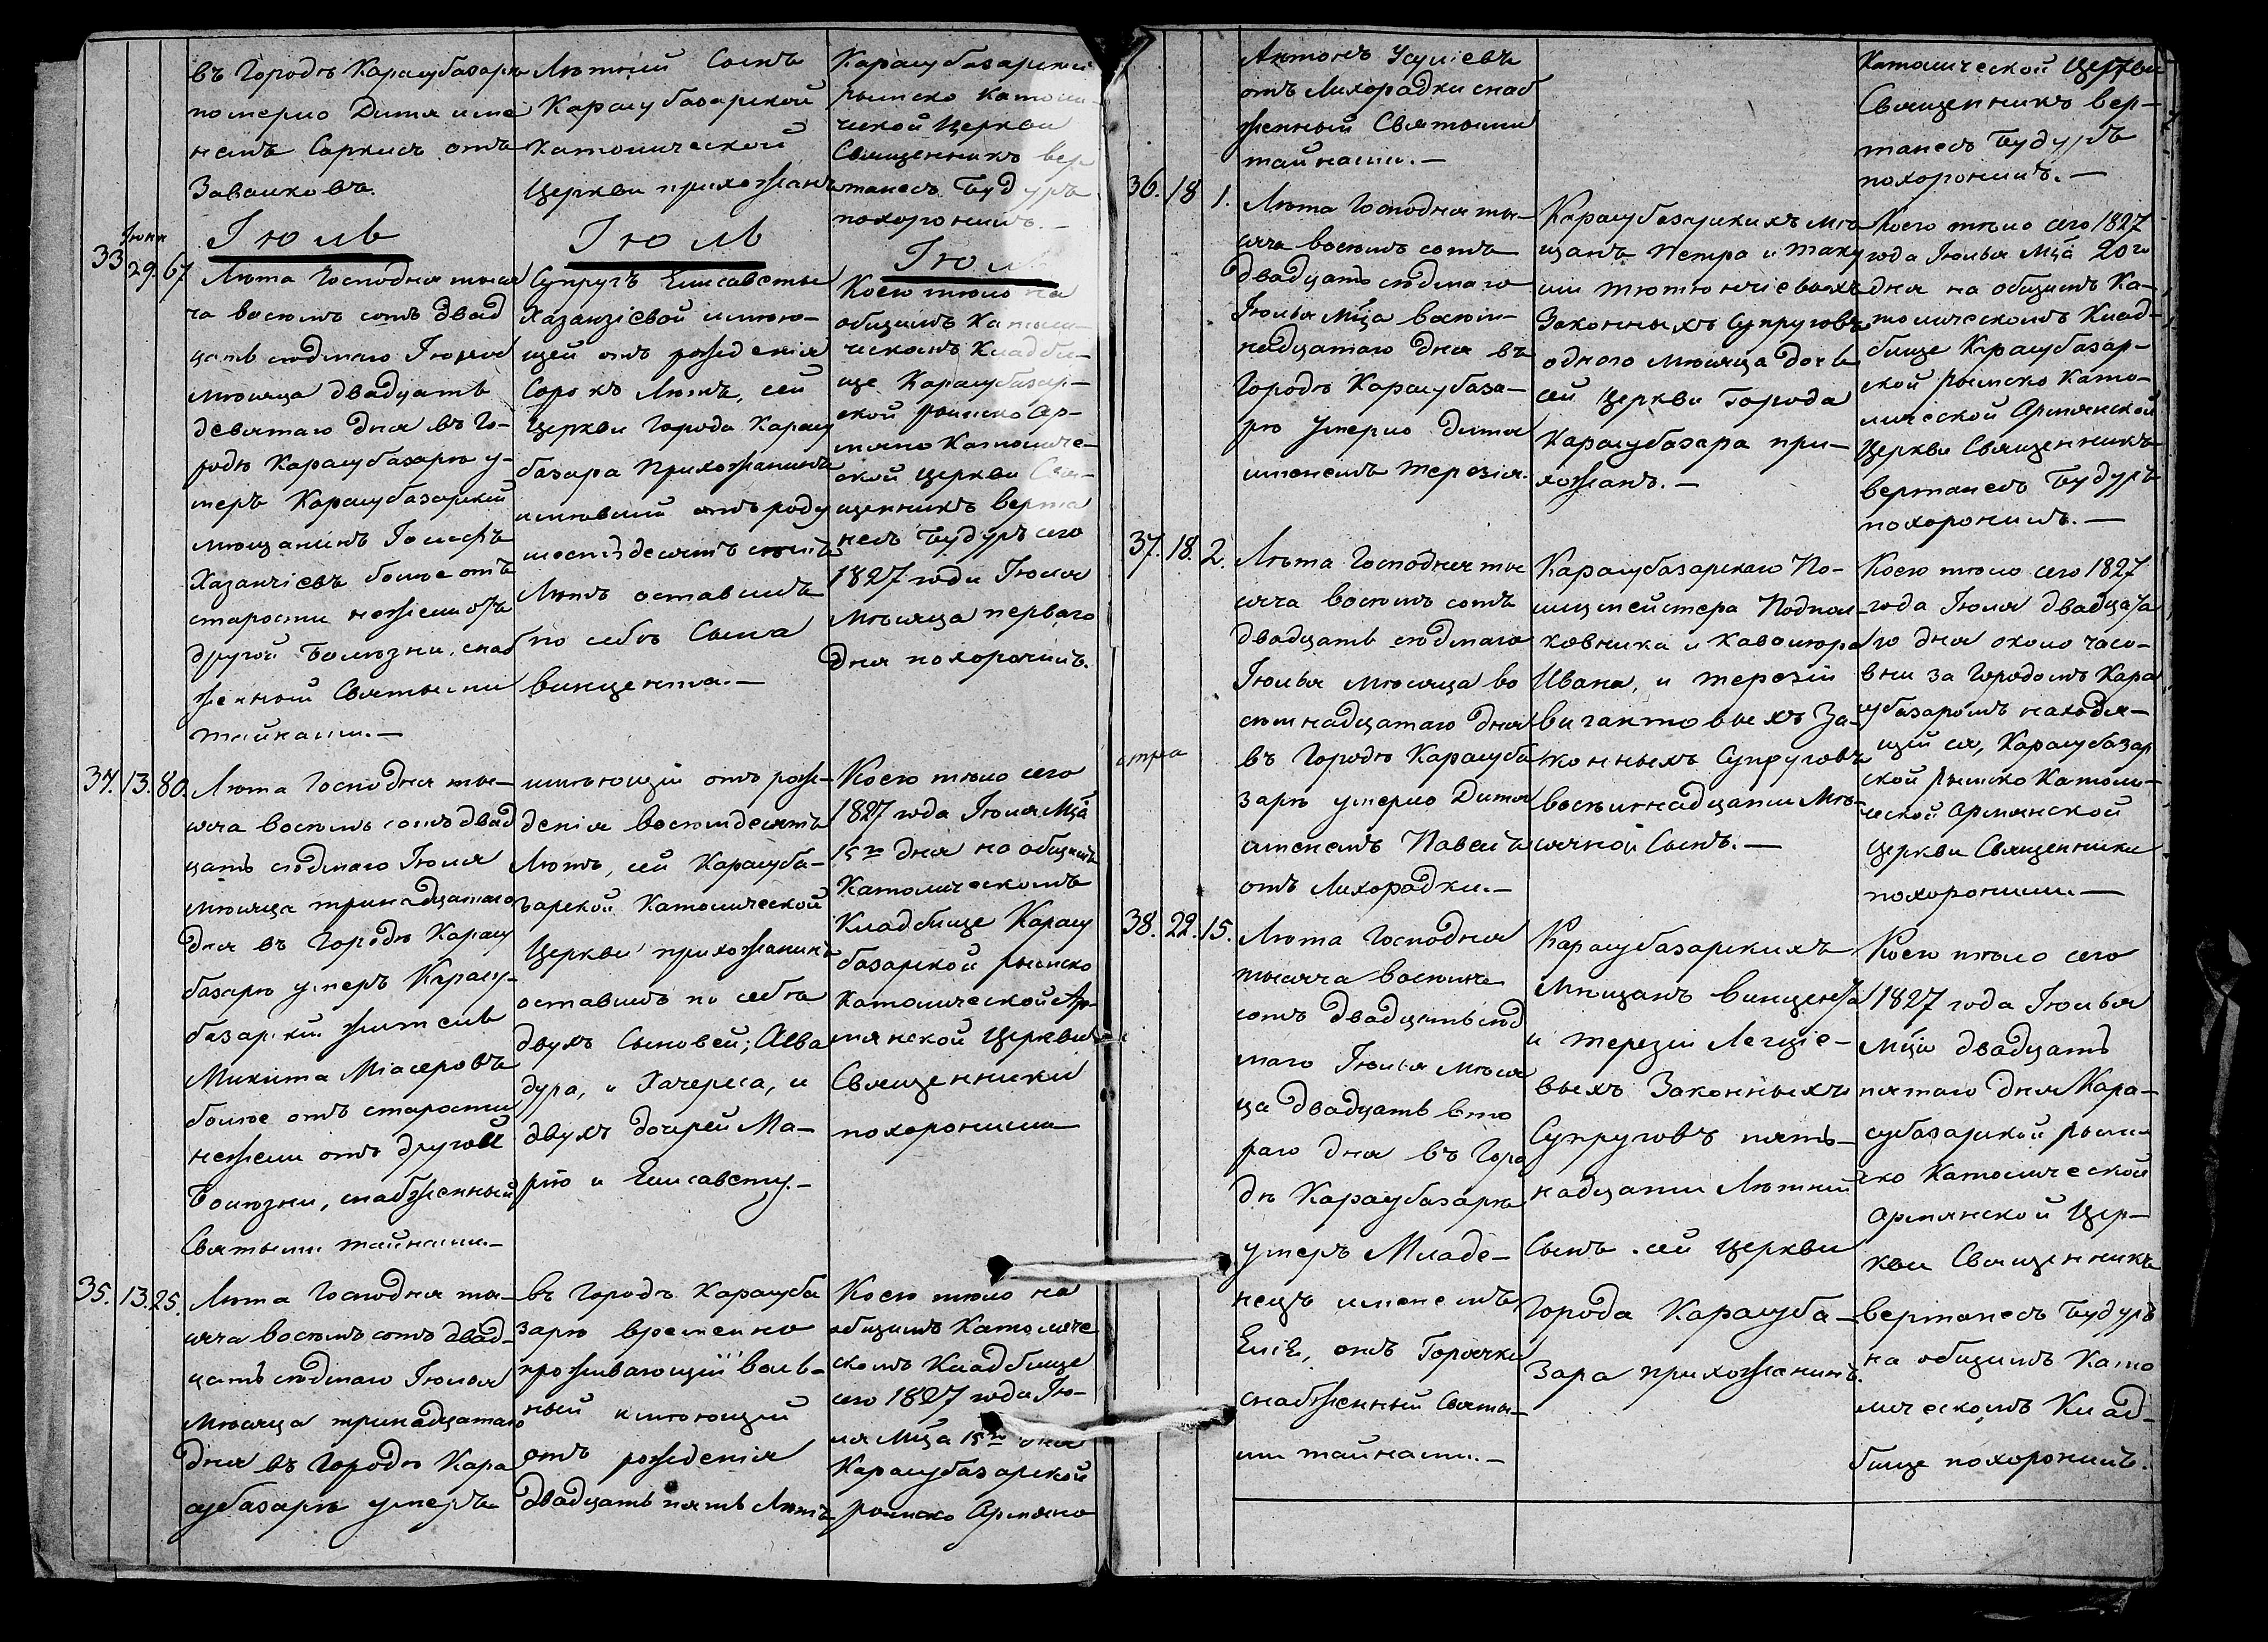 въ Городѣ Карасубазарѣ
померло Дитя име
немъ Саркисъ отъ
Завалковъ.
Іюль
Іюня
33 29. 67.
Лѣта Господня тыся
ча восемь сотъ двад
цать седмаго Іюня
мѣсяца двадцать
девятаго дня въ Го-
родѣ Карасубазарѣ у-
меръ Карасубазарскій
мѣщанинъ Іосифъ
Хазанчіевъ болѣе отъ
старости нежели отъ
другой Болѣзни, снаб
женный Святыми
тайнами.-
34. 13. 80.
Лѣта Господня ты-
сяча восемь сотъ двад
цать седмаго Іюля
мѣсяца тринадцатаго
дня въ Городѣ Карасу
базарѣ умеръ Карасу-
базарскій житель
Микита Міасеровъ
болѣе отъ старости
нежели отъ другой
Болѣзни, снабженный
Святыми тайнами.-
35. 13. 25.
Лѣта Господня ты-
сяча восемь сотъ двад-
цать седмаго Іюлья
мѣсяца тринадцатаго
дня въ Городѣ Кара
субазарѣ умеръ
Лѣтній Сынъ
Карасубазарской
Католической
Церкви прихожанъ
Іюль
Супругъ Елисаветы
Хазанзіевой имѣю-
щей отъ рожденія
Сорокъ Лѣтъ, сей
Церкви Города Карасу
базара Прихожанинъ
имѣвшій отъ роду
шестьдесятъ семь
Лѣтъ оставилъ
по себѣ Сына
Винцента.-
имѣющій отъ рож-
денія восемдесятъ
Лѣтъ, сей Карасуба-
зарской Католической
Церкви прихожанинъ
оставилъ по себѣ
двухъ Сыновей; Асва
дура, и Хачереса, и
двухъ дочерей Ма-
рію и Елисавету.-
въ Городѣ Карасуба
зарѣ временно
проживающій воль-
ный имѣющій
отъ рожденія
двадцать пять Лѣтъ
Карасубазарской
римско Католи-
ческой Церкви
Священникъ Вер
танесъ Будуръ
похоронилъ.-
Коего тѣло на
общемъ Католи-
ческомъ Кладби-
ще Карасубазар-
ской римско Ар-
мяно Католиче-
ской Церкви Свя-
щенникъ Верта
несъ Будуръ сего
1827 года Іюля
мѣсяца перваго
Дня похоронилъ.
Коего тѣло сего
1827 года Іюля Мца
15го дня на общемъ
Католическомъ
Кладбище Карасу
базарской римско
Католической Ар-
мянской Церкви
Священники
похоронили
Коего тѣло на
общемъ Католиче
скомъ Кладбище
сего 1827 года Ію-
ля Мца 15го дня
Карасубазарской
римско Армяно
Антонъ Усуліевъ
отъ Лихорадки снаб
женный Святыми
тайнами.-
36. 18 1.
Лѣта Господня ты-
сяча восемь сотъ
двадцать седмаго
Іюлья Мца восем-
надцатаго дня въ
Городѣ Карасубаза-
рѣ умерло дитя
именемъ Терезія.
37. 18. 2.
Лѣта Господня ты
сяча восемь сотъ
двадцать седмаго
Іюлья мѣсяца во
семнадцатаго дня
въ Городѣ Карасуба
зарѣ умерло Дитя
именемъ Павелъ
отъ Лихорадки.-
38. 22. 15.
Лѣта Господня
тысяча восемь
сотъ двадцать сед
маго Іюлья мѣся
ца двадцать вто
раго дня въ Горо
дѣ Карасубазарѣ
умеръ Младе-
нецъ именемъ
отъ Горячки
снабженный Святы-
ми тайнами.-
Карасубазарскихъ мѣ
щанъ Петра и Таку
ии Тютюнчіевыхъ
Законныхъ Супруговъ
одного мѣсяца дочь
сей Церкви Города
Карасубазара при-
хожанъ.-
Карасубазарскаго По-
лицмейстера Подпол-
ковника и Кавалера
Ивана, и Терезіи
Вигантовыхъ За-
конныхъ Супруговъ
восемнадцати мѣ-
сячной Сынъ.-
Карасубазарскихъ
Мѣщанъ Винцента
и Терезіи Легціе-
выхъ Законныхъ
Супруговъ пять-
надцати Лѣтній
Сынъ сей Церкви
Города Карасуба-
зара прихожанинъ.
Католической Церкви
Священникъ Вер-
танесъ Будуръ
похоронилъ.-
Коего тѣло сего 1827
года Іюлья Мца 20го
дня на общемъ Ка-
толическомъ Клад-
бище Карасубазар-
ской римско Като-
лической Армянской
Церкви Священникъ
Вертанесъ Будуръ
похоронилъ.-
Коего тѣло сего 1827
года Іюля двадцата
го дня около часо-
вни за Городомъ Кара
субазаромъ находя-
щейся, Карасубазар
ской римско Католи-
ческой Армянской
Церкви Священники
похоронили.-
Коего тѣло сего
1827 года Іюлья
Мца двадцать
пятаго дня Кара-
субазарской рим-
ско Католической
Армянской Цер-
кви Священникъ
Вертанесъ Будуръ
на общемъ Като
лическомъ Клад-
бище похоронилъ.